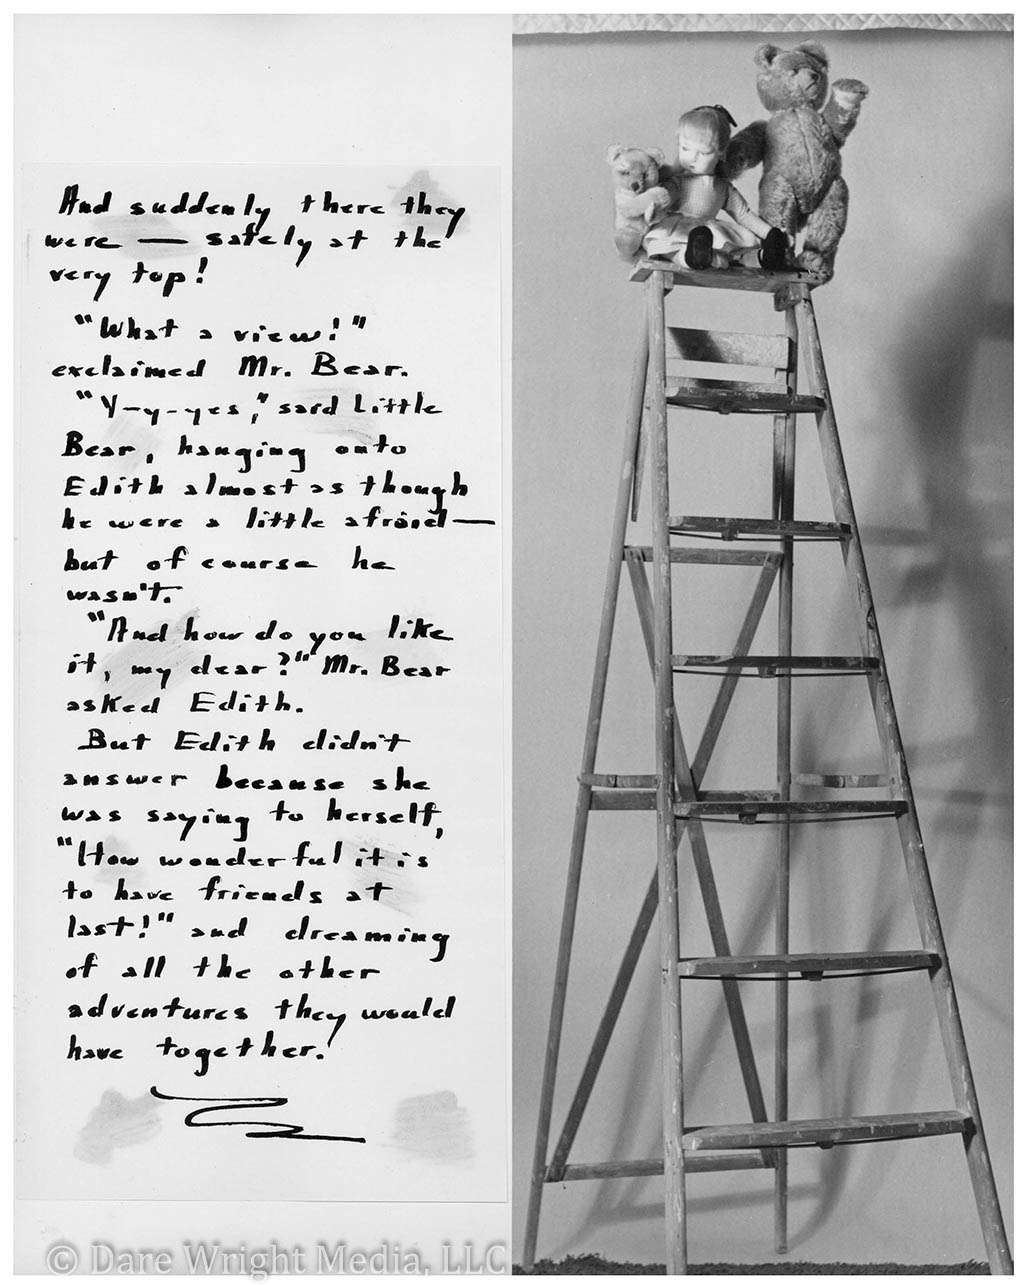 And suddenly there they
were — safely at the
very top!
"What a view!"
exclaimed Mr. Bear.
"Y-y-yes," said Little
Bear, hanging onto
Edith almost as though
he were a little afraid —
but of course he
wasn't.
"And how do you like
it, my dear?" Mr. Bear
asked Edith.
But Edith didn't
answer because she
was saying to herself,
"How wonderful it is
to have friends at
last!" and dreaming
of all the other
adventures they would
have together.
© Dare Wright Media, LLC